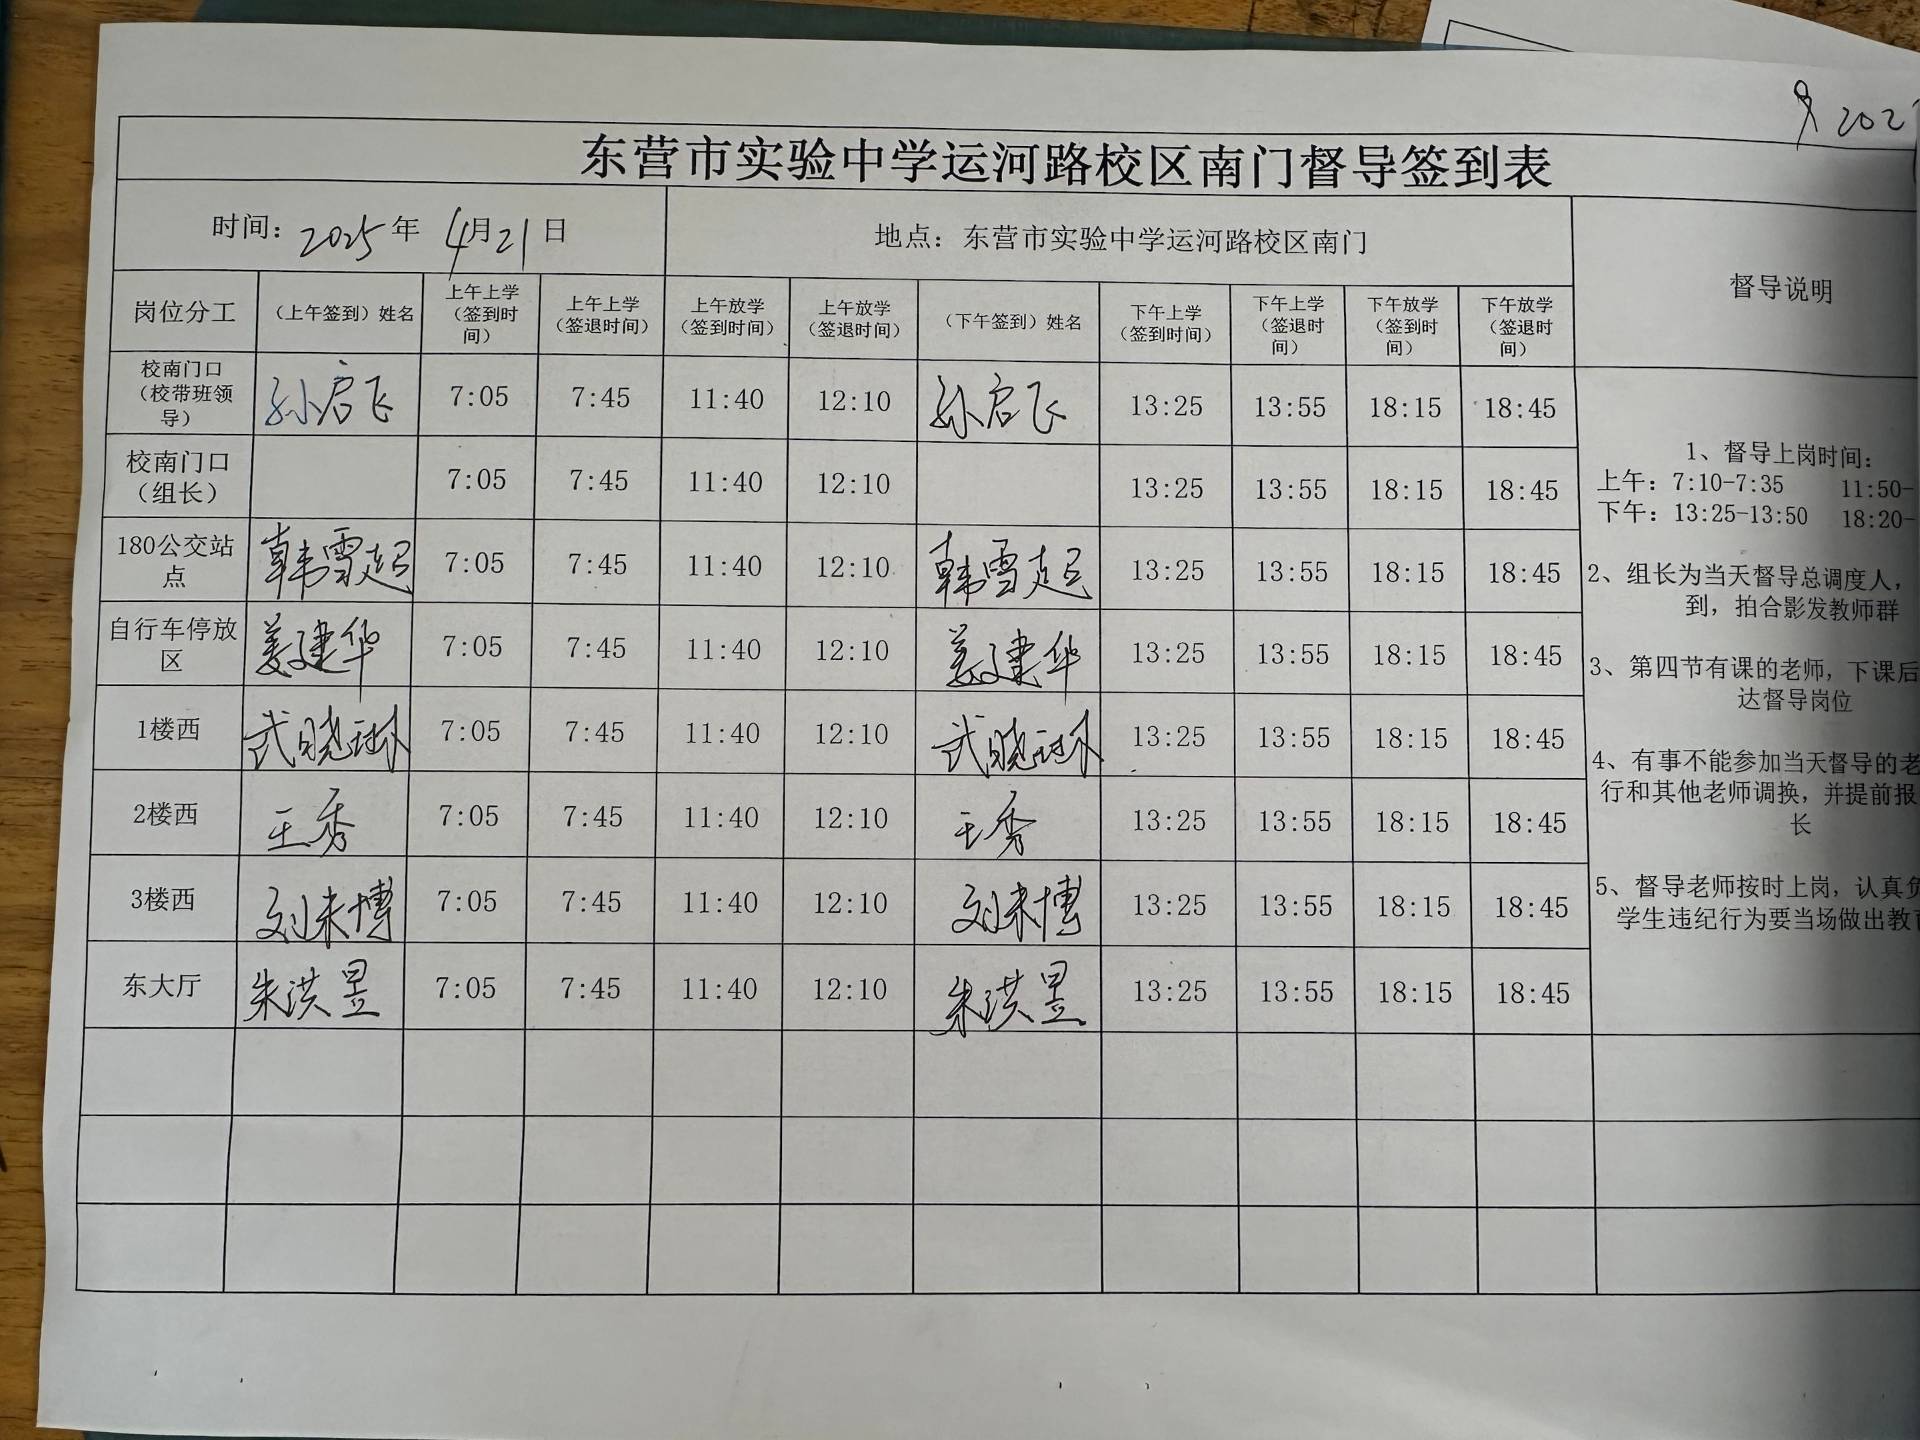 202
东营市实验中学运河路校区南门督导签到表
时间：2025年 4月21日 地点：东营市实验中学运河路校区南门 督导说明
岗位分工 （上午签到）姓名 上午上学（签到时间） 上午上学（签退时间） 上午放学（签到时间） 上午放学（签退时间） （下午签到）姓名 下午上学（签到时间） 下午上学（签退时间） 下午放学（签到时间） 下午放学（签退时间）
校南门口（校带班领导） 孙启飞 7:05 7:45 11:40 12:10 孙启飞 13:25 13:55 18:15 18:45
校南门口（组长） 7:05 7:45 11:40 12:10 13:25 13:55 18:15 18:45
180公交站点 韩雪超 7:05 7:45 11:40 12:10 韩雪超 13:25 13:55 18:15 18:45
自行车停放区 姜建华 7:05 7:45 11:40 12:10 姜建华 13:25 13:55 18:15 18:45
1楼西 武晓琳 7:05 7:45 11:40 12:10 武晓琳 13:25 13:55 18:15 18:45
2楼西 王秀 7:05 7:45 11:40 12:10 王秀 13:25 13:55 18:15 18:45
3楼西 刘来博 7:05 7:45 11:40 12:10 刘来博 13:25 13:55 18:15 18:45
东大厅 朱洪昱 7:05 7:45 11:40 12:10 朱洪昱 13:25 13:55 18:15 18:45
1、督导上岗时间：
上午：7:10-7:35 11:50-
下午：13:25-13:50 18:20-
2、组长为当天督导总调度人，
到，拍合影发教师群
3、第四节有课的老师，下课后
达督导岗位
4、有事不能参加当天督导的老
行和其他老师调换，并提前报
长
5、督导老师按时上岗，认真负
学生违纪行为要当场做出教育